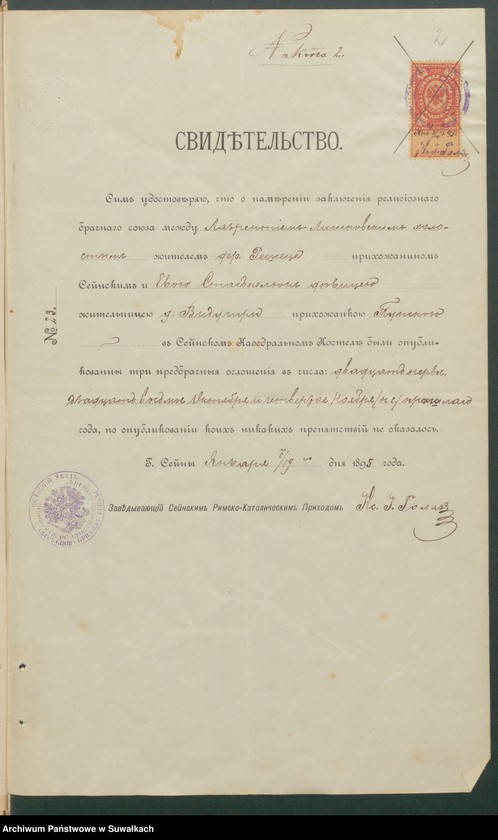 2
№ акта 2.
СВИДѢТЕЛЬСТВО.
Симъ удостовѣряю, что о намѣреніи заключенія религіознаго
брачнаго союза между Лаврентіемъ Лишковскимъ холо-
стымъ жителемъ дер. прихожаниномъ
Сейнскимъ и Евою дѣвицею
жительницею д. Видугиры прихожанкою Пунскою
въ Сейнскомъ Каѳедральномъ Костелѣ были опубли-
кованны три предбрачныя оглашенія въ числа: двадцать первое,
двадцать восьмое Октября и четвертое Ноября н. с. прошлаго
года, по опубликованіи коихъ никакихъ препятствій не оказалось.
Г. Сейны Января 7/19 дня 1895 года.
Завѣдывающій Сейнскимъ Римско-Католическимъ Приходомъ Кс. І.
№ 23.
Archiwum Państwowe w Suwałkach